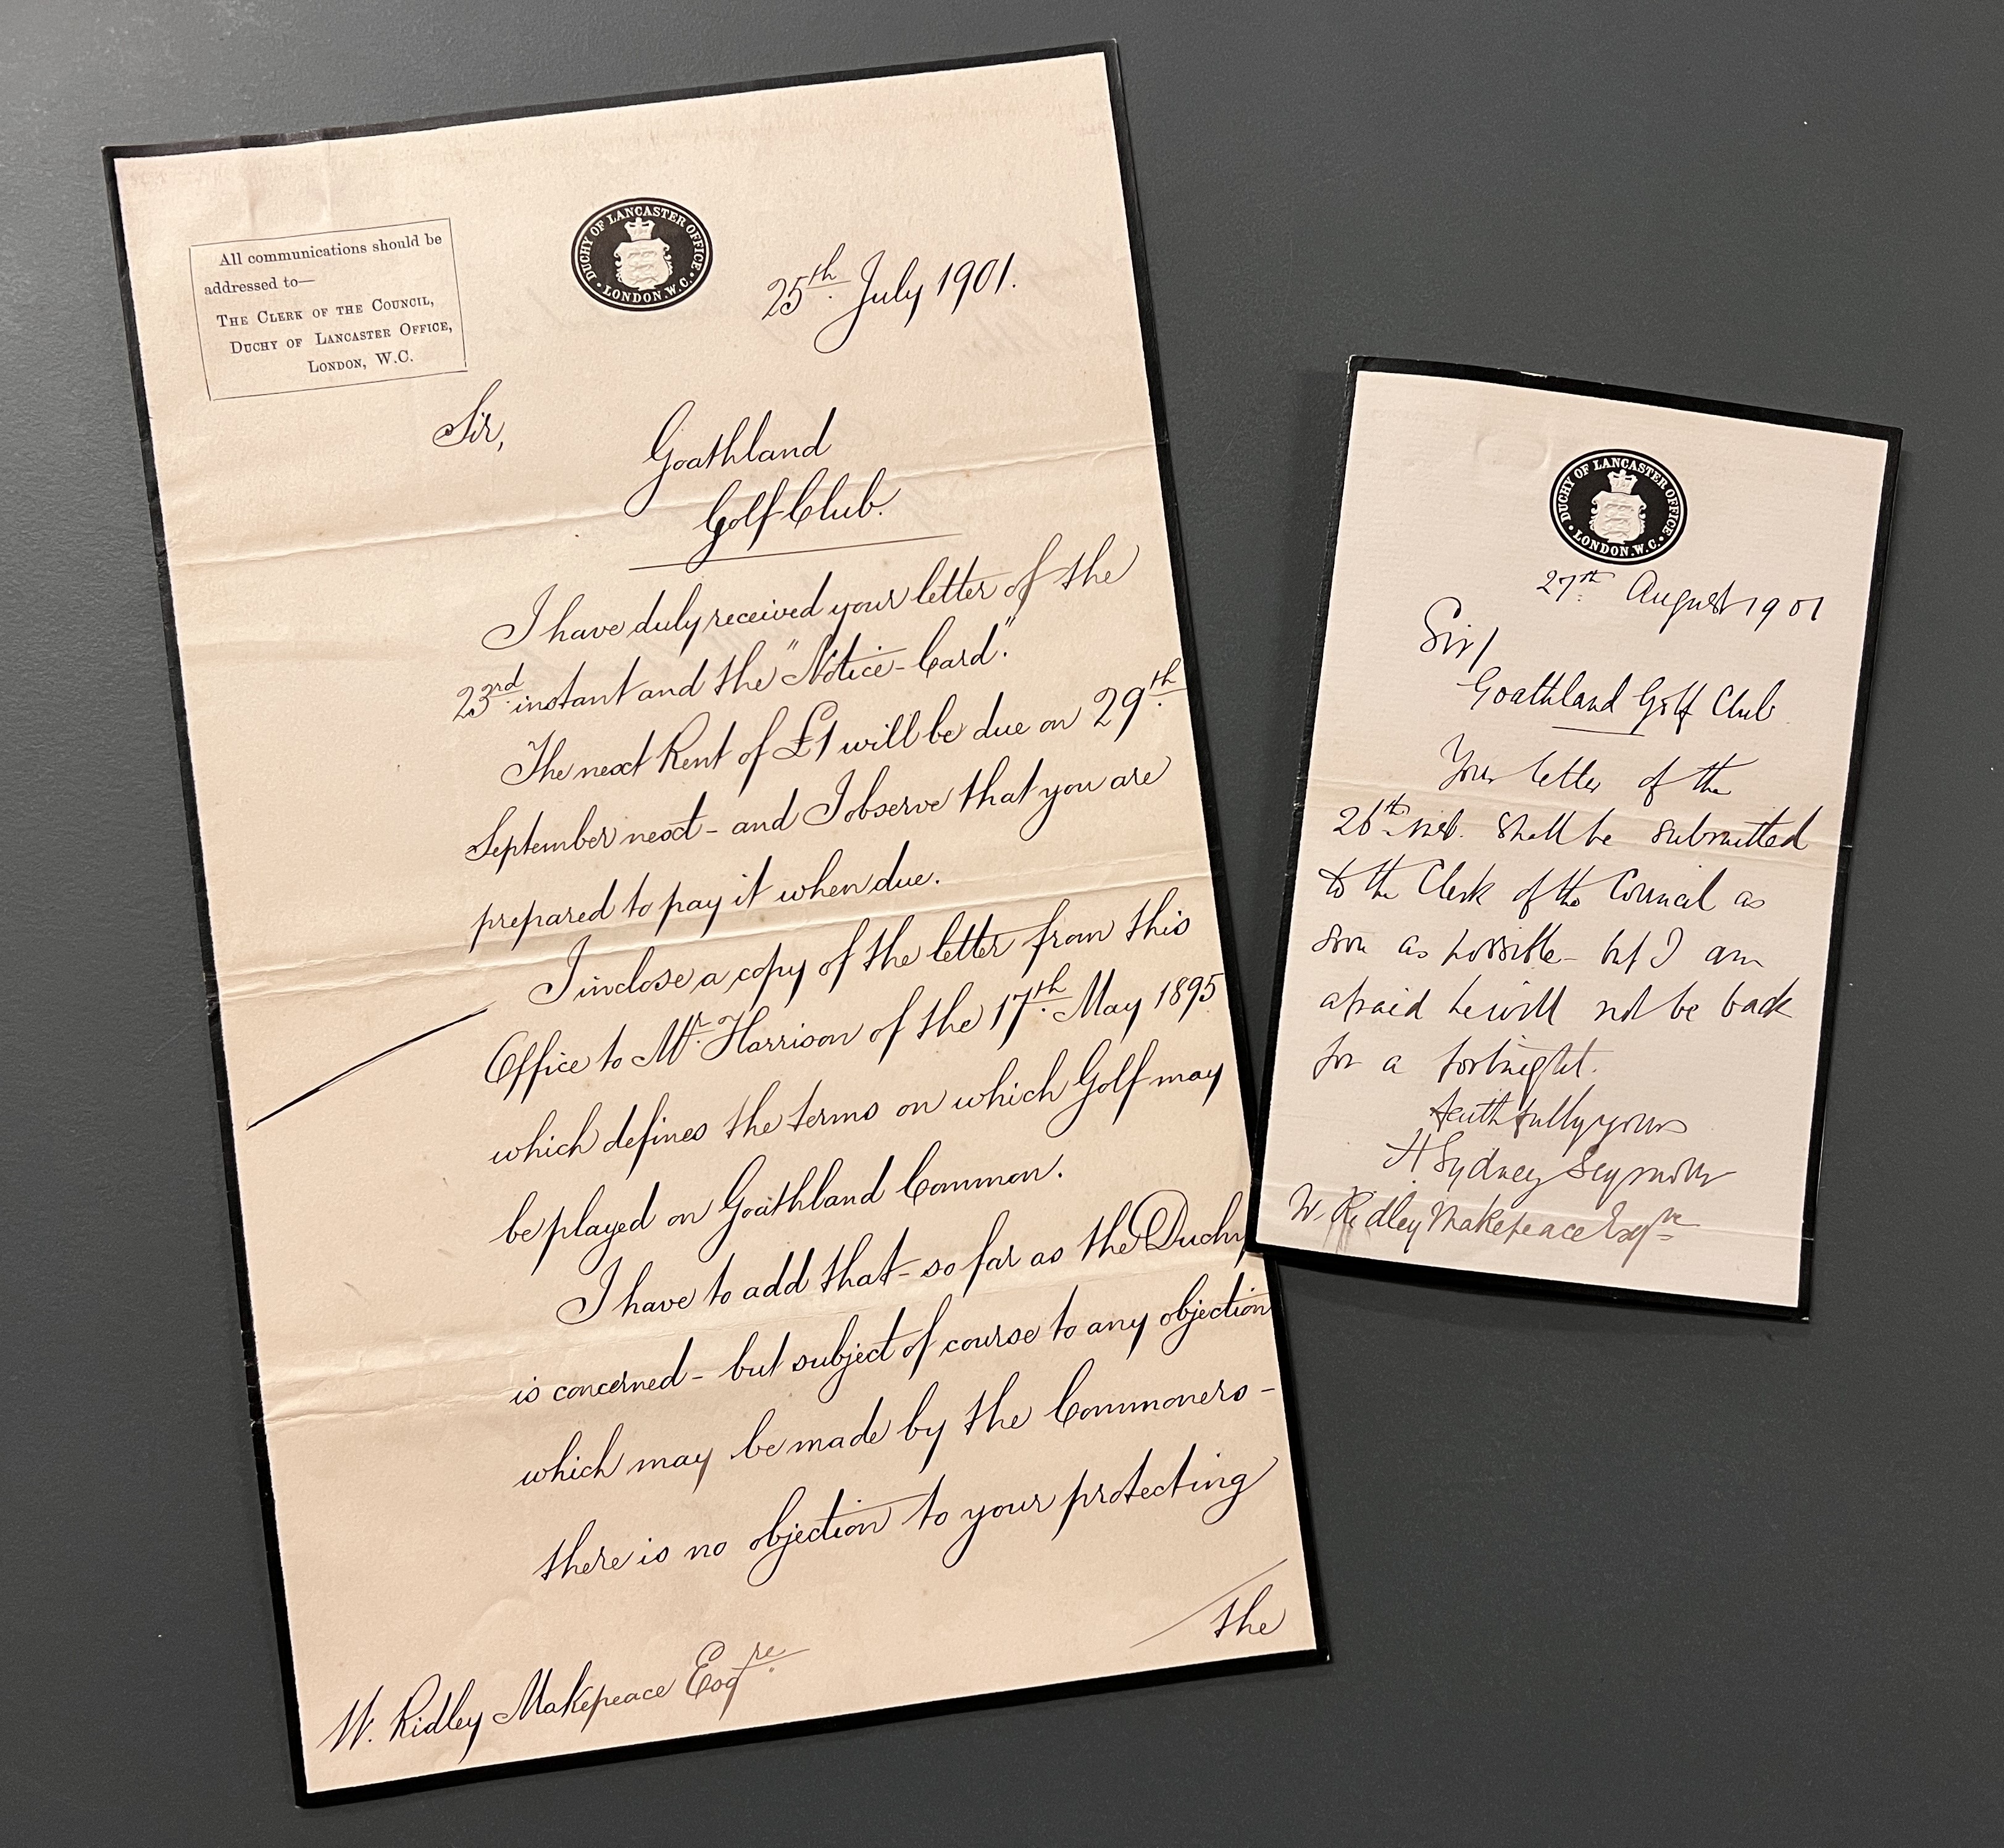 All communications should be
addressed to—
THE CLERK OF THE COUNCIL,
DUCHY OF LANCASTER OFFICE,
LONDON, W.C.
DUCHY OF LANCASTER OFFICE
LONDON. W.C.
25th July 1901.
Sir,
Goathland
Golf Club.
I have duly received your letter of the
23rd instant and the "Notice-Card."
The next Rent of £1 will be due on 29th
September next - and I observe that you are
prepared to pay it when due.
I inclose a copy of the letter from this
Office to Mr. Harrison of the 17th May 1895
which defines the terms on which Golf may
be played on Goathland Common.
I have to add that - so far as the Duchy
is concerned - but subject of course to any objection
which may be made by the Commoners -
there is no objection to your protecting
the
W. Ridley Makepeace Esqre
DUCHY OF LANCASTER OFFICE
LONDON. W.C.
27th August 1901
Sir/
Goathland Golf Club
Your letter of the
26th inst. shall be submitted
to the Clerk of the Council as
soon as possible - but I am
afraid he will not be back
for a fortnight.
Faithfully yours
H Sydney Seymour
W. Ridley Makepeace Esqre